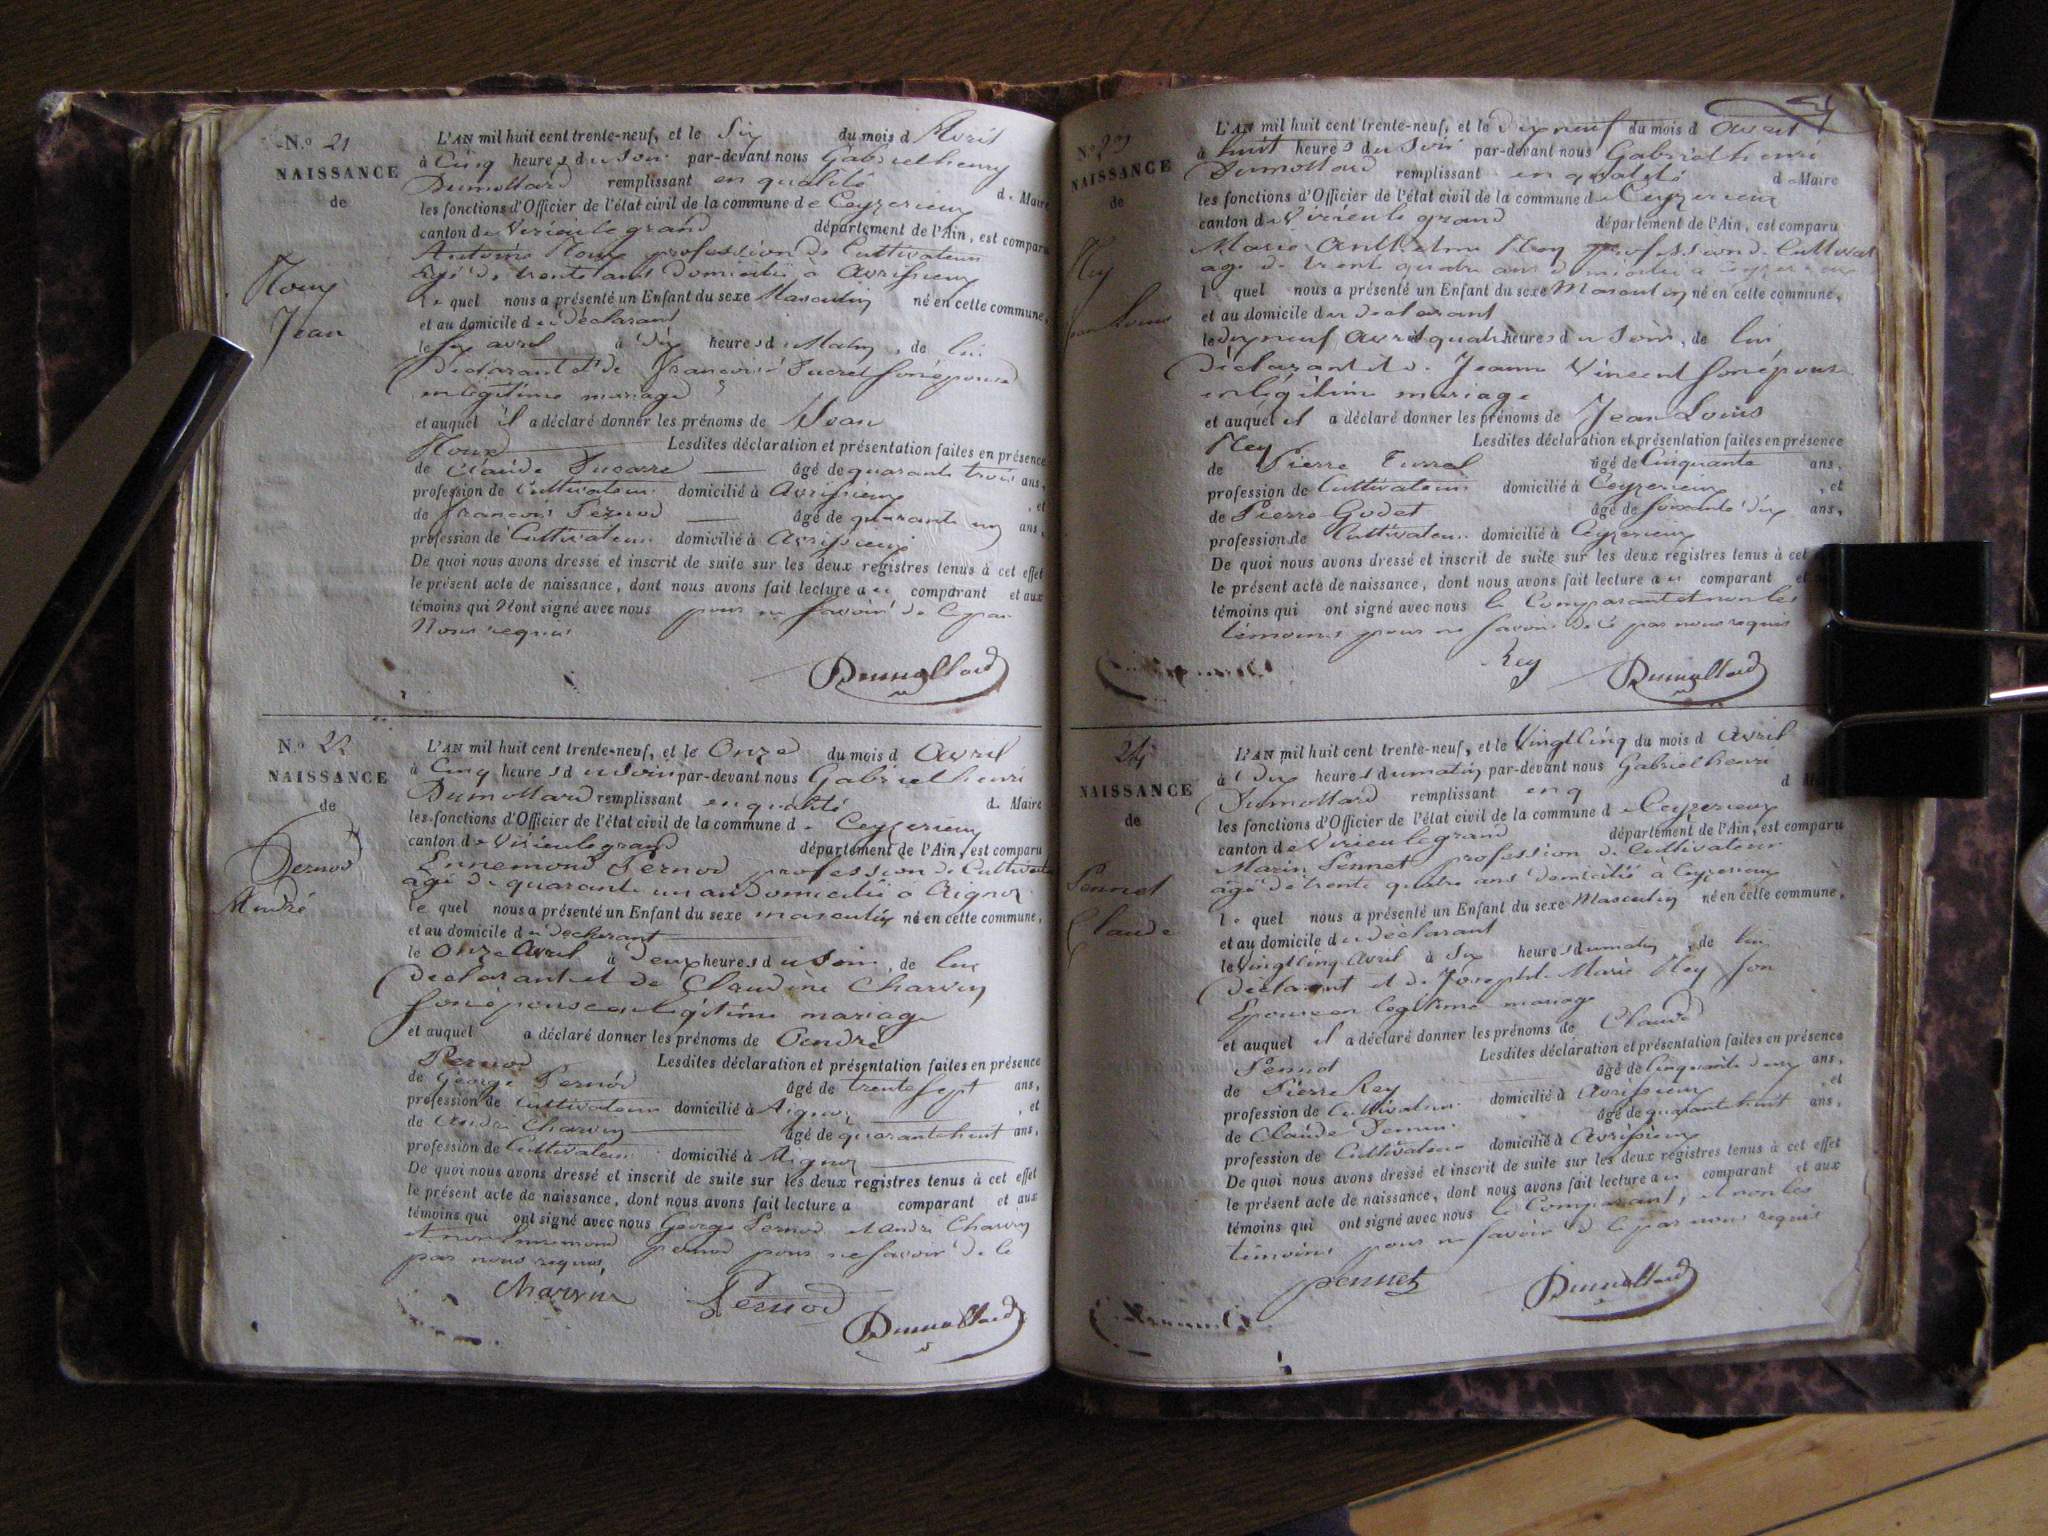 N.o 21
NAISSANCE
de
Roux
Jean
L'AN mil huit cent trente-neuf, et le Six du mois d'Avril
à Cinq heures du Soir par-devant nous Gabriel henry
Dumollard remplissant en qualité de Maire
les fonctions d'Officier de l'état civil de la commune de Ceyzerieux
canton de Virieu le grand département de l'Ain, est comparu
Antoine Roux profession de Cultivateur
âgé de trente ans domicilié à Avrissieux
le quel nous a présenté un Enfant du sexe Masculin né en cette commune,
et au domicile du Déclarant
le Six avril à dix heures du Matin, de lui
Déclarant et de Françoise Sucret son épouse
en légitime mariage
et auquel il a déclaré donner les prénoms de Jean
Roux Lesdites déclaration et présentation faites en présence
de Claude âgé de quarante trois ans,
profession de Cultivateur domicilié à Avrissieux, et
de François Pernod âgé de quarante un ans,
profession de Cultivateur domicilié à Avrissieux
De quoi nous avons dressé et inscrit de suite sur les deux registres tenus à cet effet
le présent acte de naissance, dont nous avons fait lecture au comparant et aux
témoins qui N'ont signé avec nous pour ne savoir de ce par
Nous requis
Dumollard
N.o 22
NAISSANCE
de
Pernod
André
L'AN mil huit cent trente-neuf, et le Onze du mois d'Avril
à Cinq heures du soir par-devant nous Gabriel henri
Dumollard remplissant en qualité de Maire
les fonctions d'Officier de l'état civil de la commune de Ceyzerieux
canton de Virieu le grand département de l'Ain, est comparu
Ennemond Pernod profession de Cultivateur
âgé de quarante un an domicilié à Aignoz
le quel nous a présenté un Enfant du sexe masculin né en cette commune,
et au domicile du déclarant
le Onze Avril à deux heures du Soir, de lui
déclarant et de Claudine Charvin
son épouse en légitime mariage
et auquel a déclaré donner les prénoms de André
Pernod Lesdites déclaration et présentation faites en présence
de George Pernod âgé de trente sept ans,
profession de Cultivateur domicilié à Aignoz, et
de André Charvin âgé de quarante huit ans,
profession de Cultivateur domicilié à Aignoz
De quoi nous avons dressé et inscrit de suite sur les deux registres tenus à cet effet
le présent acte de naissance, dont nous avons fait lecture a comparant et aux
témoins qui ont signé avec nous George Pernod et André Charvin
et non Ennemond pernod pour ne savoir de ce
par nous requis
Charvin Pernod
Dumollard
N.o 23
NAISSANCE
de
Rey
Jean Louis
L'AN mil huit cent trente-neuf, et le dix neuf du mois d'avril
à huit heures du Soir par-devant nous Gabriel henri
Dumollard remplissant en qualité de Maire
les fonctions d'Officier de l'état civil de la commune de Ceyzerieux
canton de Virieu le grand département de l'Ain, est comparu
Marie Anthelme Rey profession de Cultivat
âgé de trente quatre ans domicilié à Ceyzerieux
le quel nous a présenté un Enfant du sexe Masculin né en cette commune,
et au domicile du declarant
le dix neuf Avril à quatre heures du Soir, de lui
Déclarant et de Jeanne Vincent son épouse
en légitime mariage
et auquel il a déclaré donner les prénoms de Jean Louis
Rey Lesdites déclaration et présentation faites en présence
de Pierre Turrel âgé de Cinquante ans,
profession de Cultivateur domicilié à Ceyzerieux, et
de Pierre Godet âgé de soixante dix ans,
profession de Cultivateur domicilié à Ceyzerieux
De quoi nous avons dressé et inscrit de suite sur les deux registres tenus à cet
le présent acte de naissance, dont nous avons fait lecture au comparant et
témoins qui ont signé avec nous le Comparant et non les
témoins pour ne savoir de ce par nous requis
Rey Dumollard
24
NAISSANCE
de
Pennet
Claude
L'AN mil huit cent trente-neuf, et le Vingt Cinq du mois d'Avril
à dix heures du matin par-devant nous Gabriel henri
Dumollard remplissant en q d M
les fonctions d'Officier de l'état civil de la commune de Ceyzerieux
canton de Virieu le grand département de l'Ain, est comparu
Marin Pennet profession de Cultivateur
âgé de trente quatre ans domicilié à Ceyzerieux
le quel nous a présenté un Enfant du sexe Masculin né en cette commune,
et au domicile du déclarant
le Vingt Cinq Avril à Six heures du matin, de lui
déclarant et de Josephte Marie Rey son
Epouse en légitime mariage
et auquel il a déclaré donner les prénoms de Claude
Pennet Lesdites déclaration et présentation faites en présence
de Pierre Rey âgé de Cinquante deux ans,
profession de Cultivateur domicilié à Avrissieux, et
de Claude âgé de quarante huit ans,
profession de Cultivateur domicilié à Avrissieux
De quoi nous avons dressé et inscrit de suite sur les deux registres tenus à cet effet
le présent acte de naissance, dont nous avons fait lecture au comparant et aux
témoins qui ont signé avec nous le Comparant, et non les
témoins pour ne savoir de ce par nous requis
pennet Dumollard